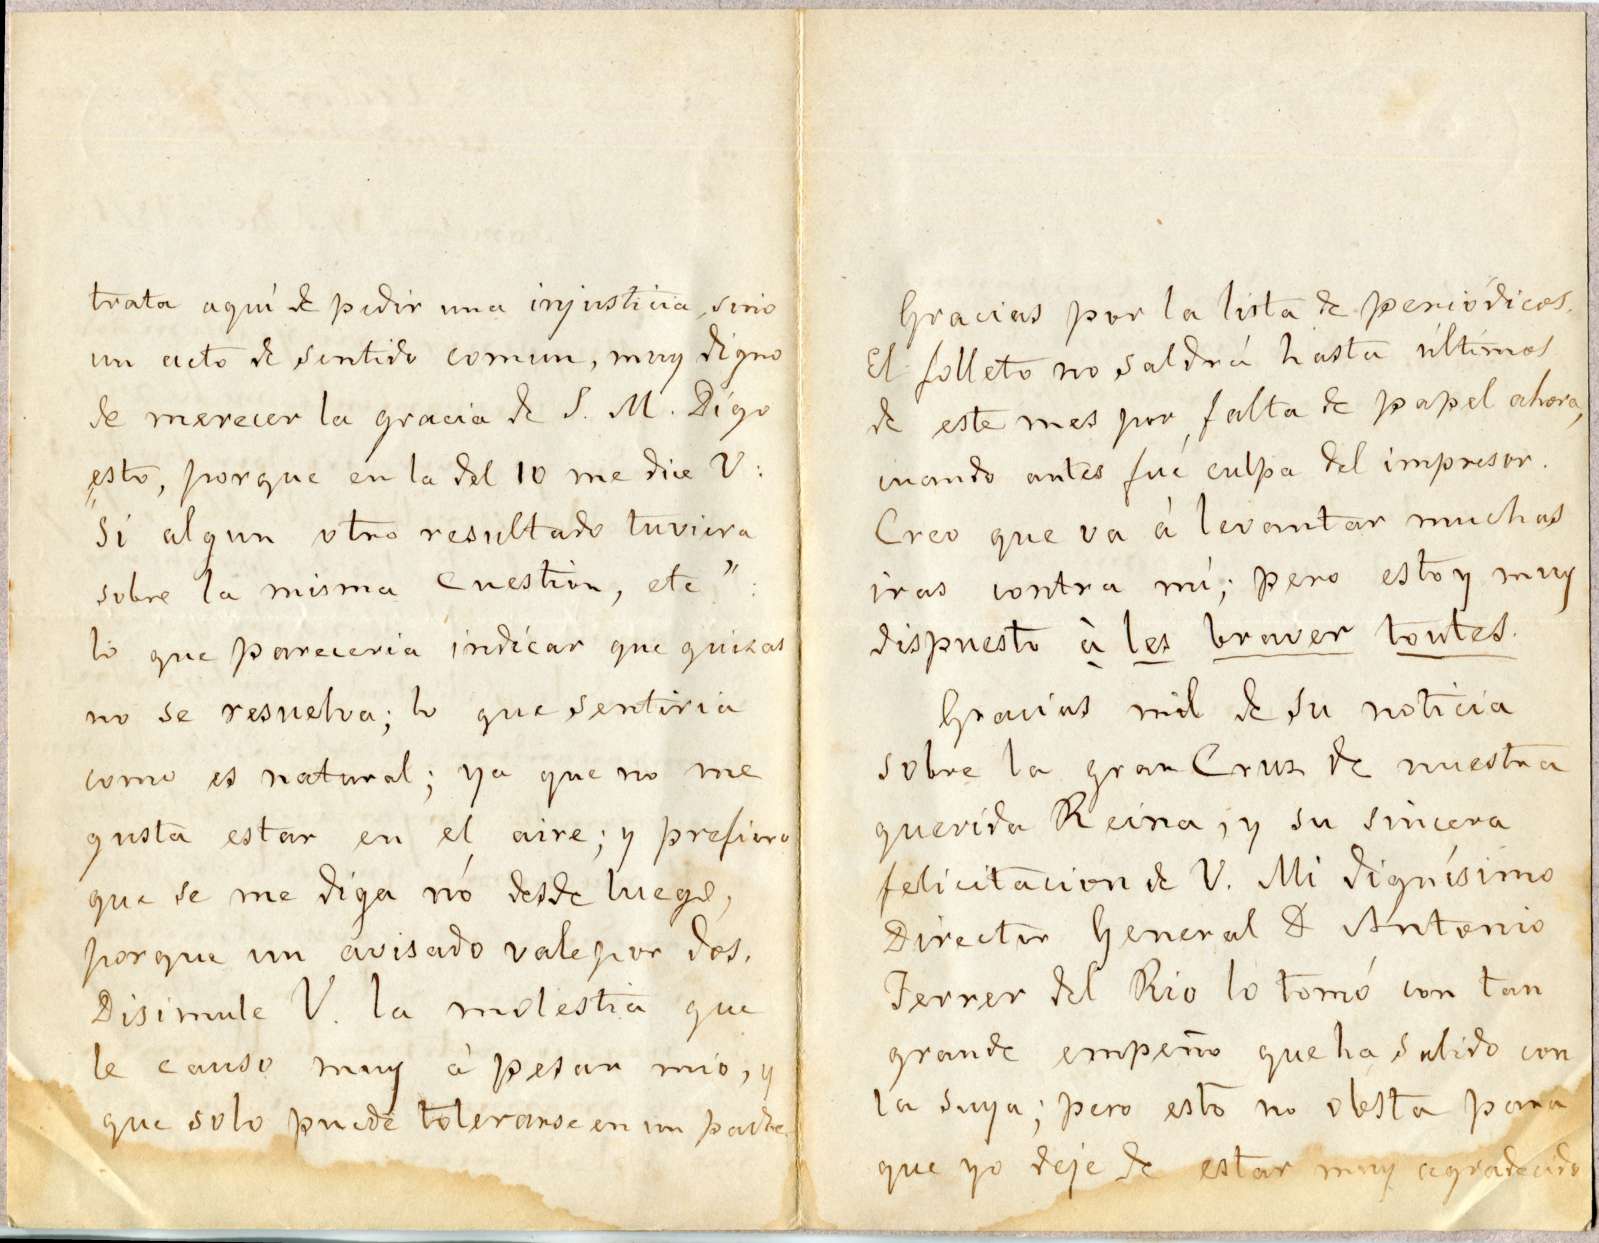 trata aquí de pedir una injusticia, sino
un acto de sentido comun, muy digno
de merecer la gracia de S. M. Digo
esto, porque en la del 10 me dice V:
"Si algun otro resultado tuviera
sobre la misma cuestion, etc":
lo que pareceria indicar que quizas
no se resuelva; lo que sentiria
como es natural; ya que no me
gusta estar en el aire; y prefiero
que se me diga nó desde luego,
porque un avisado vale por dos.
Disimule V. la molestia que
le causo muy á pesar mio, y
que solo puede tolerarse en un padre.
Gracias por la lista de periódicos.
El folleto no saldrá hasta últimos
de este mes por falta de papel ahora,
cuando antes fué culpa del impresor.
Creo que va á levantar muchas
iras contra mí; pero estoy muy
dispuesto à les braver toutes.
Gracias mil de su noticia
sobre la gran Cruz de nuestra
querida Reina, y su sincera
felicitacion de V. Mi dignísimo
Director General D Antonio
Ferrer del Rio lo tomó con tan
grande empeño que ha salido con
la suya; pero esto no obsta para
que yo deje de estar muy agradecido